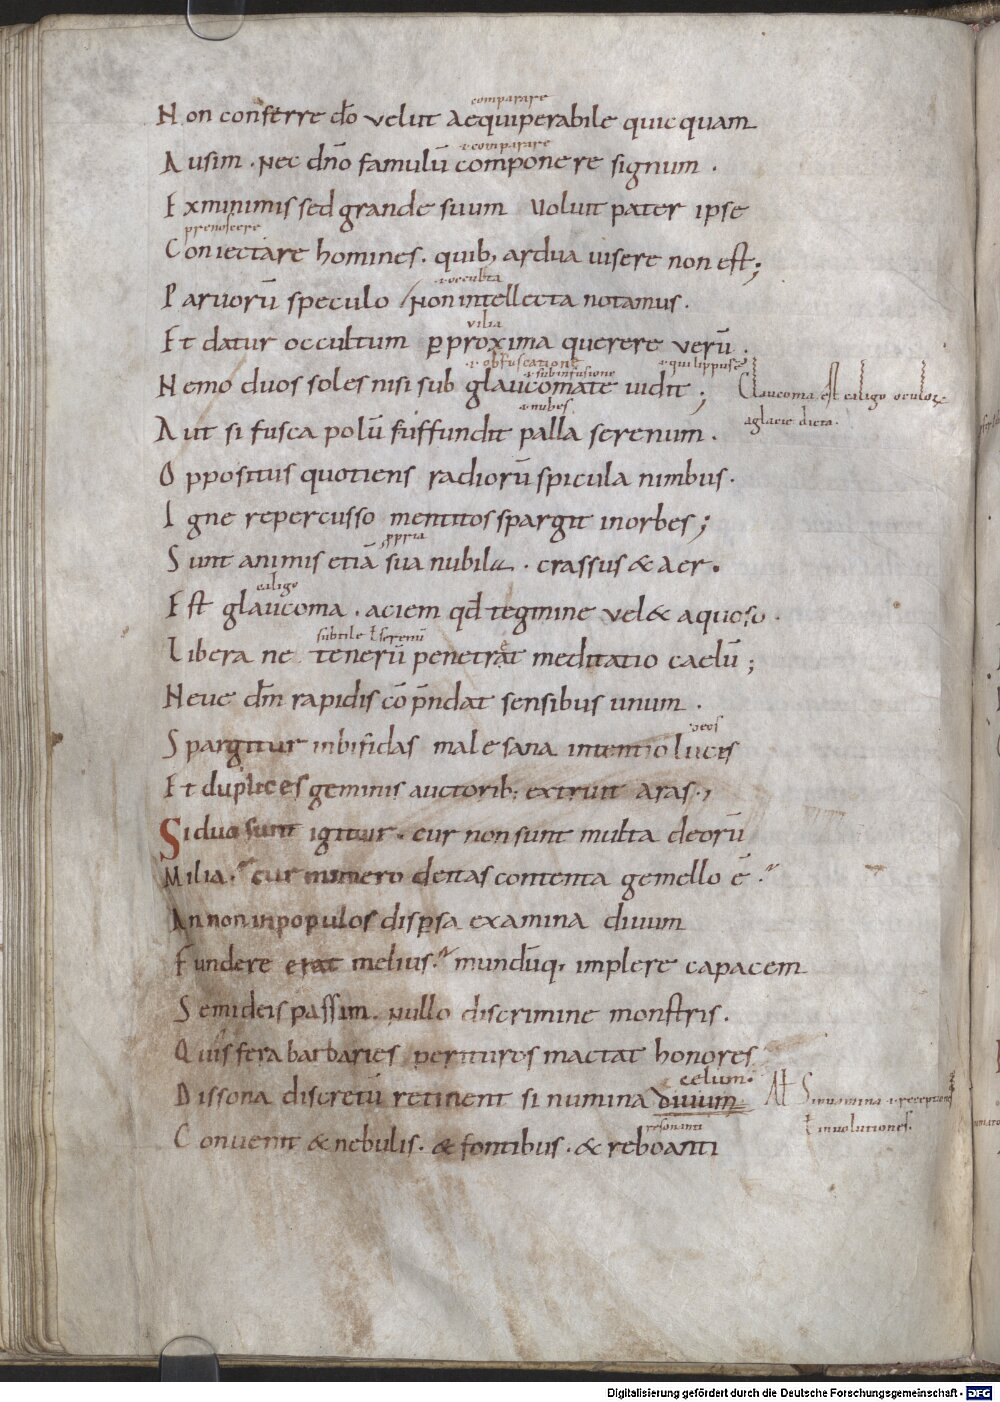 comparare
Non conferre dō velut aequiperabile quicquam
.i. comparare
Ausim . nec dn̄o famulū componere signum .
Exminimis sed grande suum voluit pater ipse
prenoscere
Coniectare homines . quib; ardua visere non est;
.i. occulta
Parvorū speculo non intellecta notamus .
vilia
Et datur occultum p̱proxima querere verū .
.i. obfuscatione
.i. subinfusione
Nemo duos soles nisi sub glaucomate vidit ;
Glaucoma est caligo oculoꝝ
aglacie dicta .
.i. nubes
Aut si fusca polū suffundit palla serenum .
Oppositus quotiens radiorū spicula nimbus .
Igne repercusso mentitos spargit inorbes ;
ppria
Sunt animis etiā sua nubila . crassus & aer .
caligo
Est glaucoma . aciem qđ tegmine vel& aquoso .
subtile ł serenū
Libera ne tenerū penetrat meditatio caelū ;
Neve dm̄ rapidis cōp̄ndat sensibus unum .
Spargitur inbifidas malesana intentio lucis
Et duplices geminis auctorib; extruit aras .
Si duo sunt igitur . cur non sunt multa deorū
Milia . cur numero deitas contenta gemello ē .
An non inpopulos disp̱sa examina divum
Fundere erat melius . mundūq; implere capacem
Semideis passim . nullo discrimine monstris .
Quis fera barbaries perituros mactat honores
celum .
Dissona discretū retinent si numina divum
Al Sinuamina .i. receptiones
ł involutiones .
resonanti
Convenit & nebulis . & fontibus . & reboanti
Digitalisierung gefördert durch die Deutsche Forschungsgemeinschaft - DFG